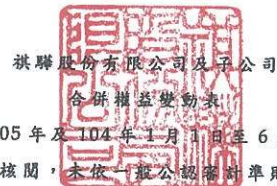 祺驊股份有限公司及子公司
合併權益變動表
05年及104年1月1日至6
核閱,未依一般公認審計準